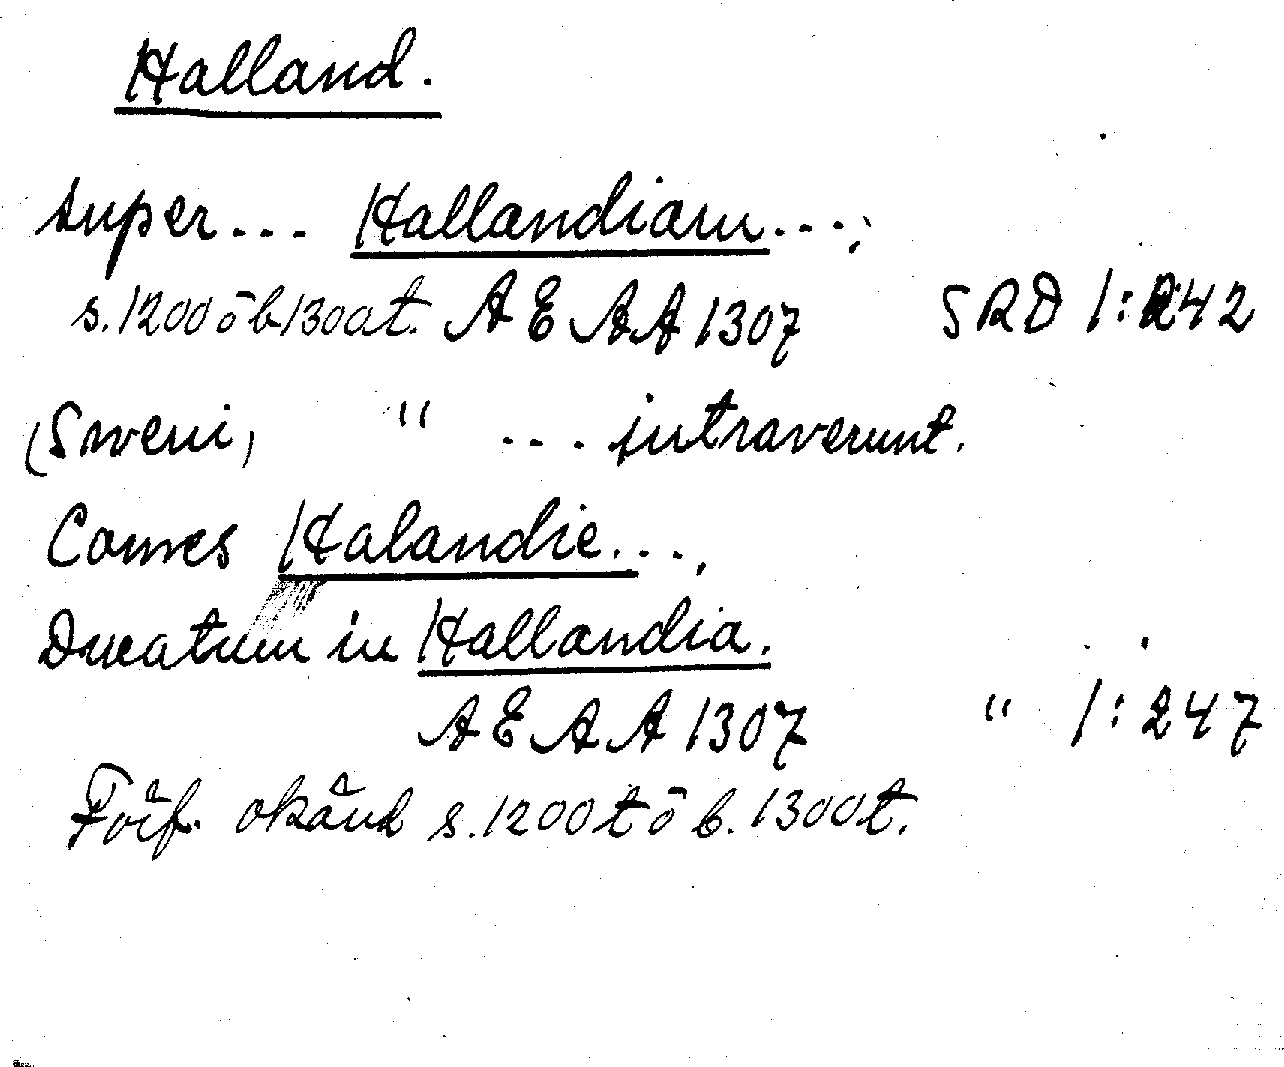 Halland.
Super... Hallandiam...;
s.1200 ö b.1300 t. AEAA 1307 SRD 1:242
(Sweni) " ... intraverunt.
Comes Halandie...,
Ducatum in Hallandia.
AEAA 1307 " 1:247
Förf. okänd s.1200t ö b. 1300t.